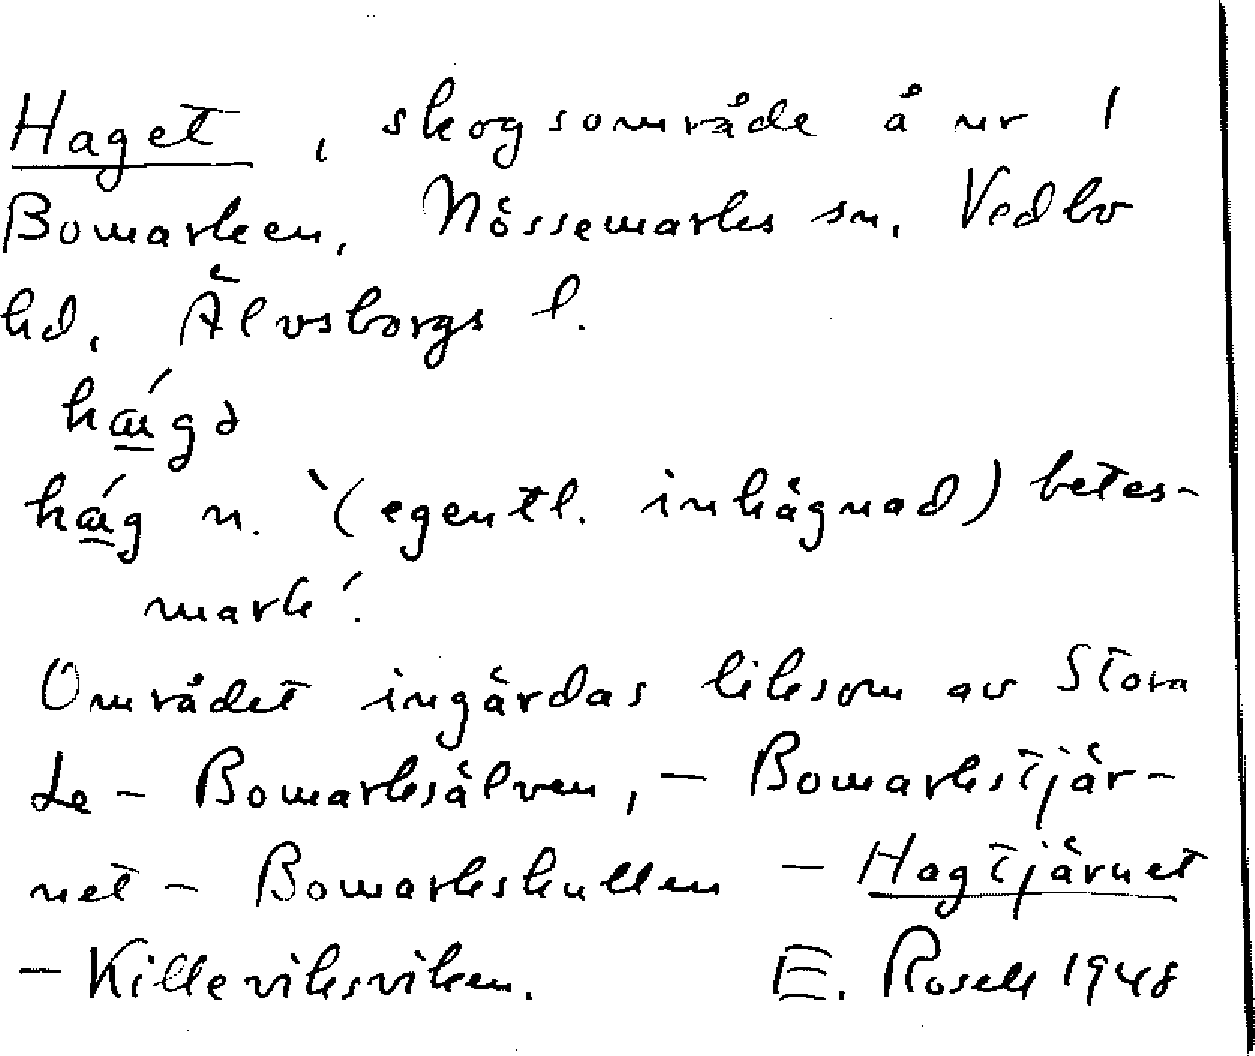 Haget, skogsområde å nr 1
Bomarken, Nössemarks sn, Vedbo
hd, Älvsborgs l.
hág n. `(egentl. inhägnad) betes-
mark´.
Området ingärdas liksom av Stora
Le - Bomarksälven, - Bomarkstjär-
net - Bomarkskullen - Hagtjärnet
- Killeviksviken. E. Rosell 1948